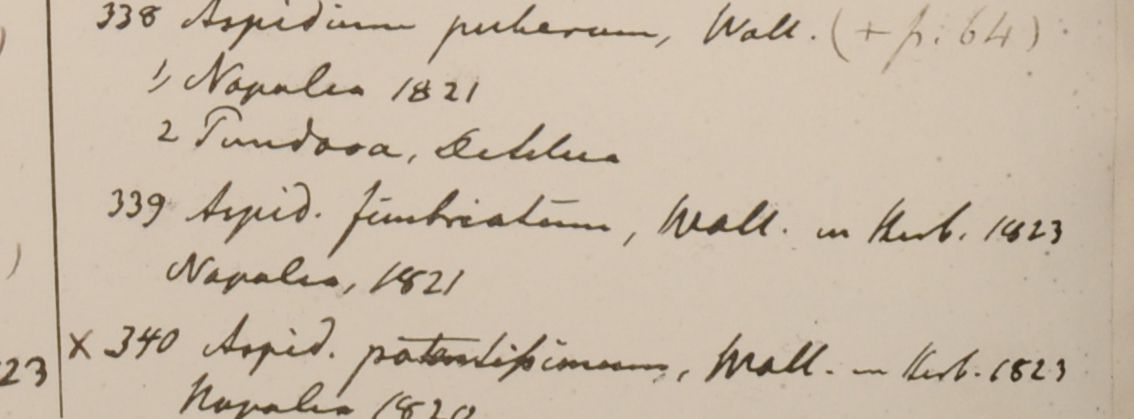 338 Aspidium puberum, Wall. (+ p. 64)
1, Napalia 1821
2 Tundova, Dehlua
339 Aspid. fimbriatum, Wall. in Herb. 1823
Napalia, 1821
23 X 340 Aspid. patentissimum, Wall. in Herb. 1823
Napalia 1820